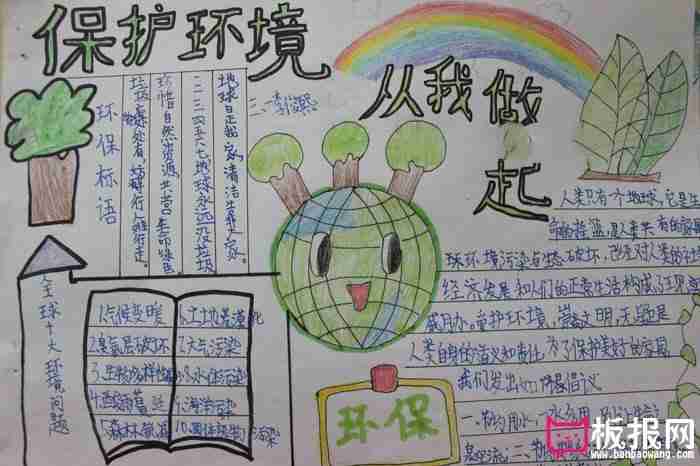 保护环境
从我做起
环保标语
地球是我家,清洁
一二三四五六七地球永远没垃圾
珍惜自然资源,共营生命绿色
全球十大环境问题
1.气候变暖
2.臭氧层破坏
3.生物多样性
4.酸雨蔓延
5.森林
6.土地荒漠化
7.大气污染
8.水体污染
9.海洋污染
10.固体废物污染
环保
人类只有一个地球,它是生
命的摇篮,是人类共有的家园
球环境污染与生态破坏,已经对人类的
经济发展和人们的正常生活构成了
威胁。保护环境,
人类自身的意义和责任。为了保护美好的家园,
我们发出
一、节约用水
板报网
www.banbaowang.com